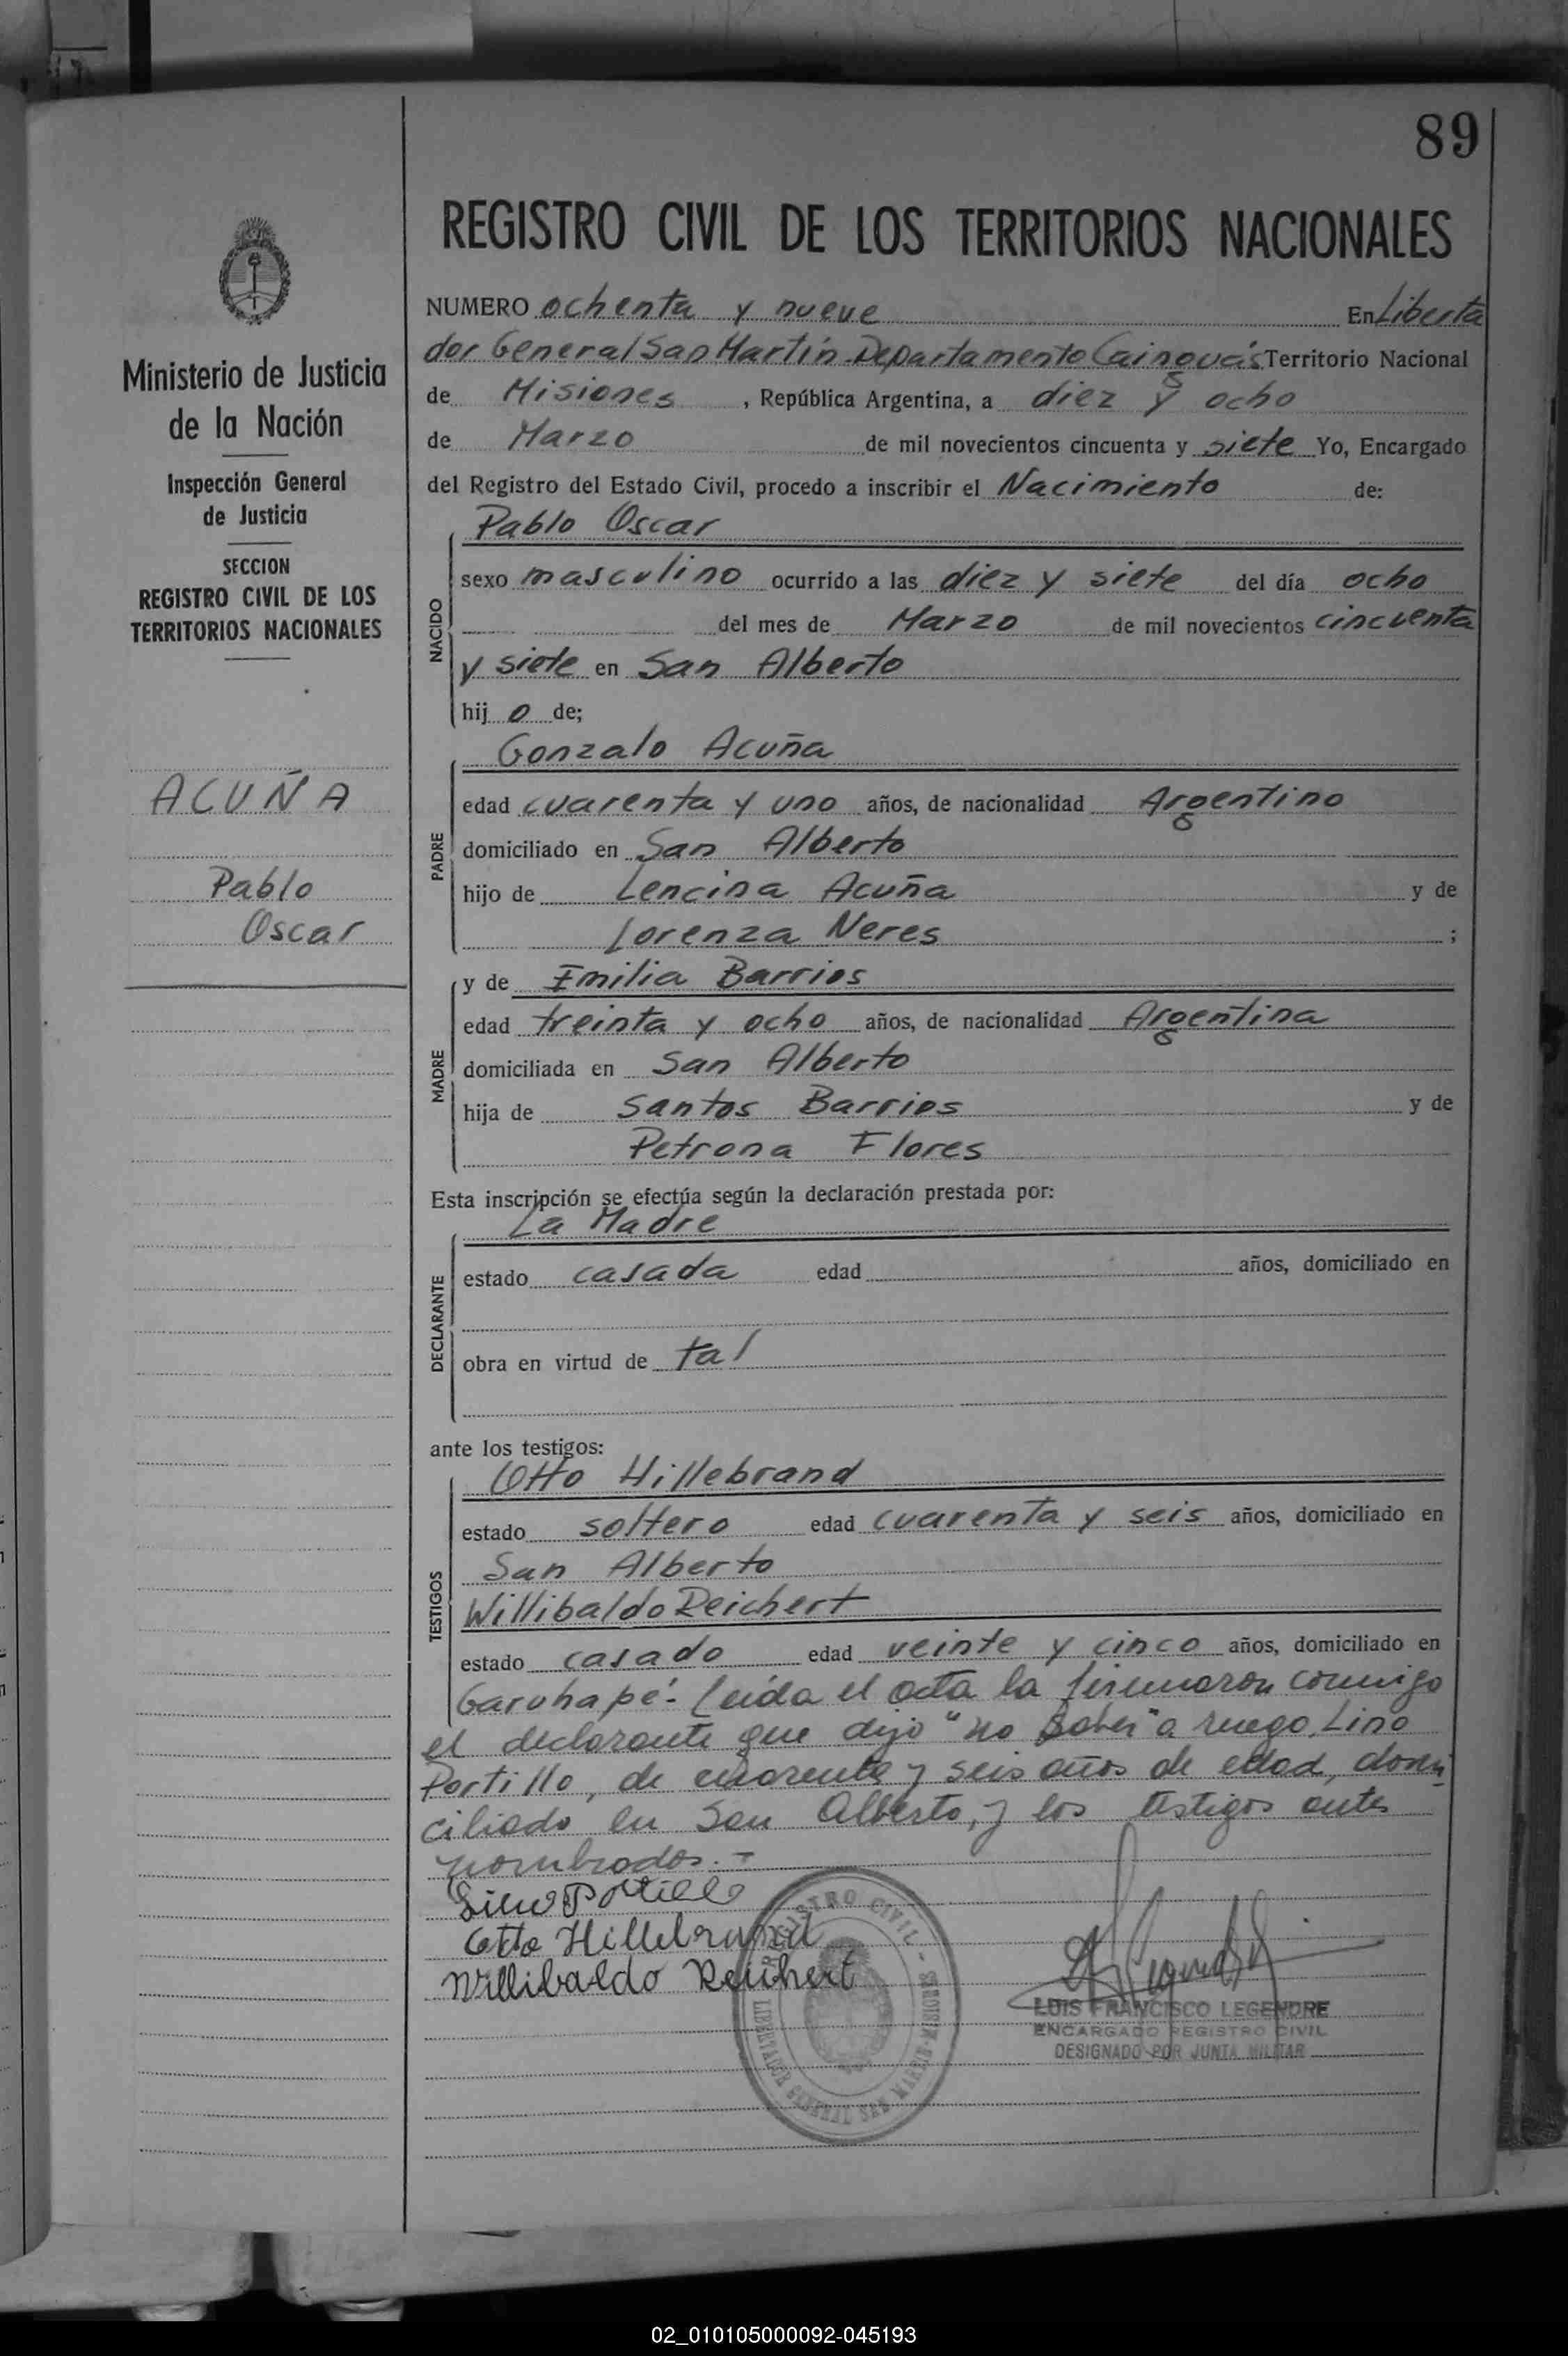 89
REGISTRO CIVIL DE LOS TERRITORIOS NACIONALES
Ministerio de Justicia
de la Nación
Inspección General
de Justicia
SECCION
REGISTRO CIVIL DE LOS
TERRITORIOS NACIONALES
ACUÑA
Pablo
Oscar
NUMERO ochenta y nueve En Liberta
dor General San Martín Departamento Cainguás Territorio Nacional
de Misiones , República Argentina, a diez y ocho
de Marzo de mil novecientos cincuenta y siete Yo, Encargado
del Registro del Estado Civil, procedo a inscribir el Nacimiento de:
Pablo Oscar
NACIDO
sexo masculino ocurrido a las diez y siete del día ocho
del mes de Marzo de mil novecientos cincuenta
y siete en San Alberto
hij o de;
Gonzalo Acuña
PADRE
edad cuarenta y uno años, de nacionalidad Argentino
domiciliado en San Alberto
hijo de Lencina Acuña y de
Lorenza Neres ;
y de Emilia Barrios
MADRE
edad treinta y ocho años, de nacionalidad Argentina
domiciliada en San Alberto
hija de Santos Barrios y de
Petrona Flores
Esta inscripción se efectúa según la declaración prestada por:
La Madre
DECLARANTE
estado casada edad años, domiciliado en
obra en virtud de tal
ante los testigos:
Otto Hillebrand
TESTIGOS
estado soltero edad cuarenta y seis años, domiciliado en
San Alberto
Willibaldo Reichert
estado casado edad veinte y cinco años, domiciliado en
Garuhapé.- Leída el acta la firmaron conmigo
el declarante que dijo "no saber" a ruego Lino
Portillo, de cuarenta y seis años de edad, domi
ciliado en San Alberto, y los testigos antes
nombrados.-
Lino Portillo
Otto Hillebrand
Willibaldo Reichert
REGISTRO CIVIL - MISIONES
LIBERTADOR GENERAL SAN MARTIN
LUIS FRANCISCO LEGENDRE
ENCARGADO REGISTRO CIVIL
DESIGNADO POR JUNTA MILITAR
02_010105000092-045193